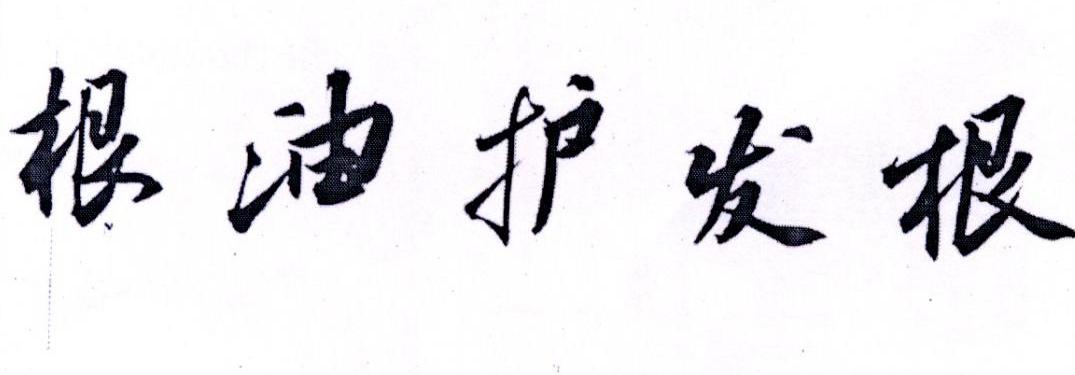 根油护发根